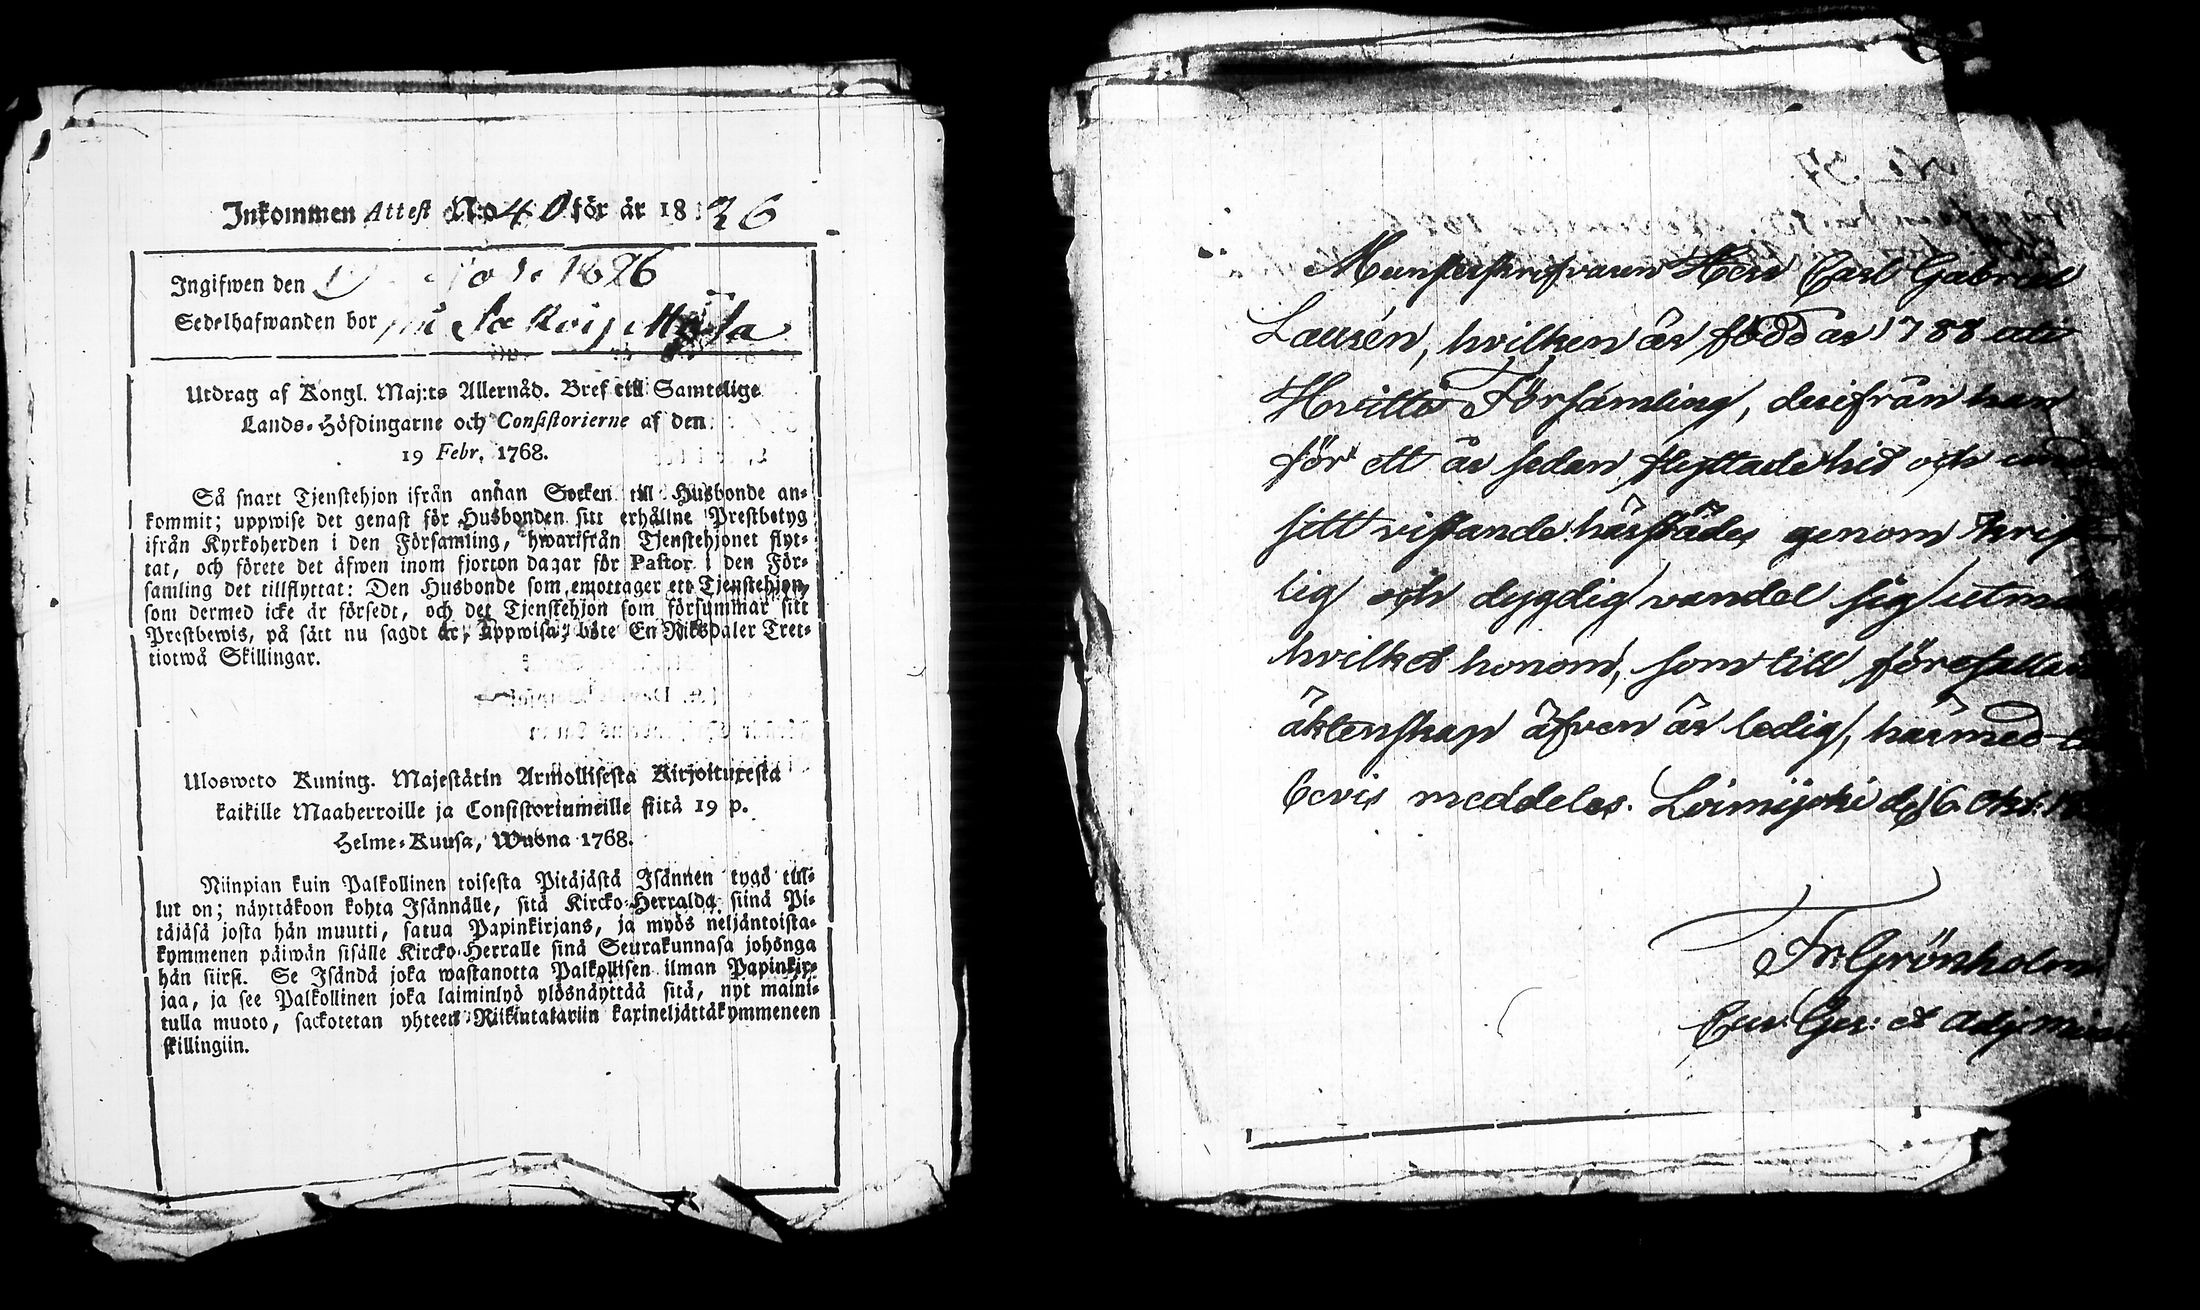 Inkommen Attest N:o 40 för år 1826
Ingifwen den 1826
Sedelhafwanden bor
Utdrag af Kongl. Maj:ts Allernåd. Bref till Samtelige
Lands-Höfdingarne och Consistorierne af den
19 Febr. 1768.
Så snart Tjenstehjon ifrån annan Socken till Husbonde an-
kommit; uppwise det genast för Husbonden sitt erhållne Prestbetyg
ifrån Kyrkoherden i den Församling, hwarifrån Tjenstehjonet flyt-
tat, och förete det äfwen inom fjorton dagar för Pastor i den För-
samling det tillflyttat: Den Husbonde som emottager ett Tjenstehjon,
som dermed icke är försedt, och det Tjenstehjon som försummar sitt
Prestbewis, på sätt nu sagdt är, uppwisa; böte En Riksdaler Tret-
tiotwå Skillingar.
Ulosweto Kuning. Majestätin Armollisesta Kirjoituxesta
kaikille Maaherroille ja Consistoriumeille siitä 19 p.
Helme-Kuusa, Wuona 1768.
Niinpian kuin Palkollinen toisesta Pitäjästä Isännen tygö tul-
lut on; näyttäkoon kohta Isännälle, sitä Kircko-Herralda siinä Pi-
täjäsä josta hän muutti, saatua Papinkirjans, ja myös neljäntoista-
kymmenen päiwän sisälle Kircko-Herralle sinä Seurakunnasa johonga
hän siirst. Se Isändä joka wastanotta Palkollisen ilman Papinkir-
jaa, ja see Palkollinen joka laiminlyö ylösnäyttää sitä, nyt maini-
tulla muoto, sackotetan yhteen Riikintalariin kaxineljättäkymmeneen
skillingiin.
No 37
Munsterskrifvaren Herr Carl Gabriel
Laurén, hvilken är född år 1788 uti
Hvittis Församling, derifrån han
för ett år sedan flyttade hid och
sitt vistande härstädes genom krist
lig och dygdig vandel sig utmä
hvilket honom, som till
äktenskap äfven är ledig, härmed
bevis meddeles. Loimijoki d. 16 Okt. 18
Fr. Grönholm
Cur. Ger: et Adj. Min